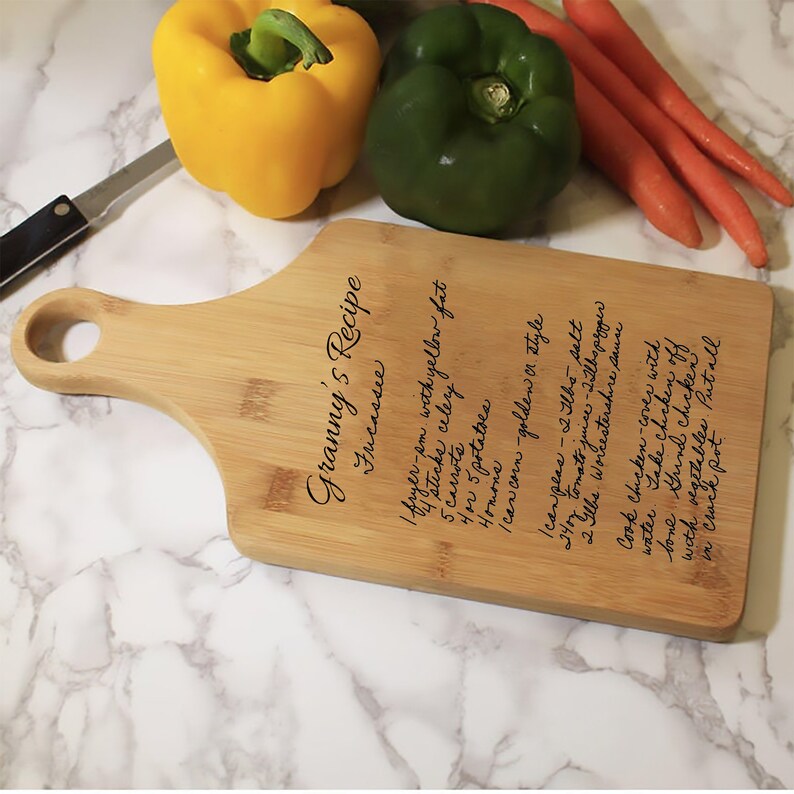 Granny's Recipe
Fricassee
1 fryer-sm. with yellow fat
4 sticks celery
5 carrots
4 or 5 potatoes
4 onions
1 can corn - golden cr style
1 can peas - 2 Tlbs - salt
24 oz tomato juice - 2 Tlbs pepper
2 Tlbs Worcestershire sauce
Cook chicken - cover with
water. Take chicken off
bone. Grind chicken
with vegetables. Put all
in crock pot.